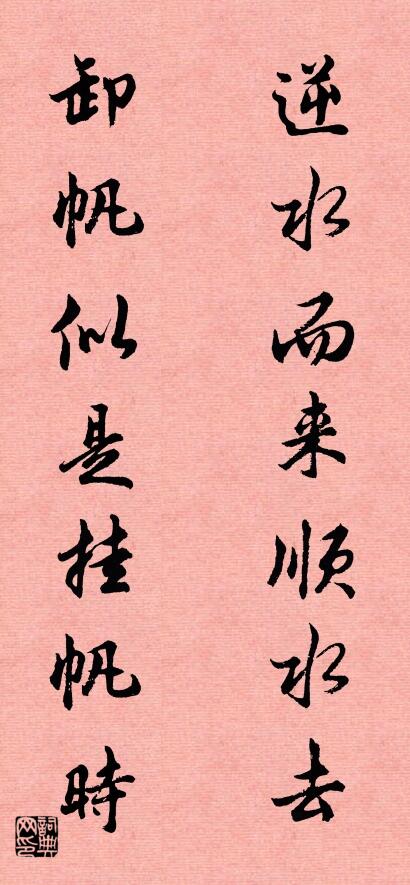 逆水而来顺水去
卸帆似是挂帆时
词典网印